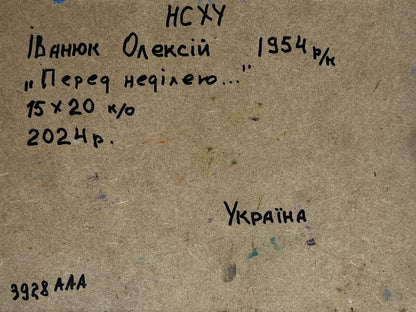 НСХУ
Іванюк Олексій 1954 р/н
„Перед неділею..."
15×20 к/о
2024р.
Україна
3928 ААА